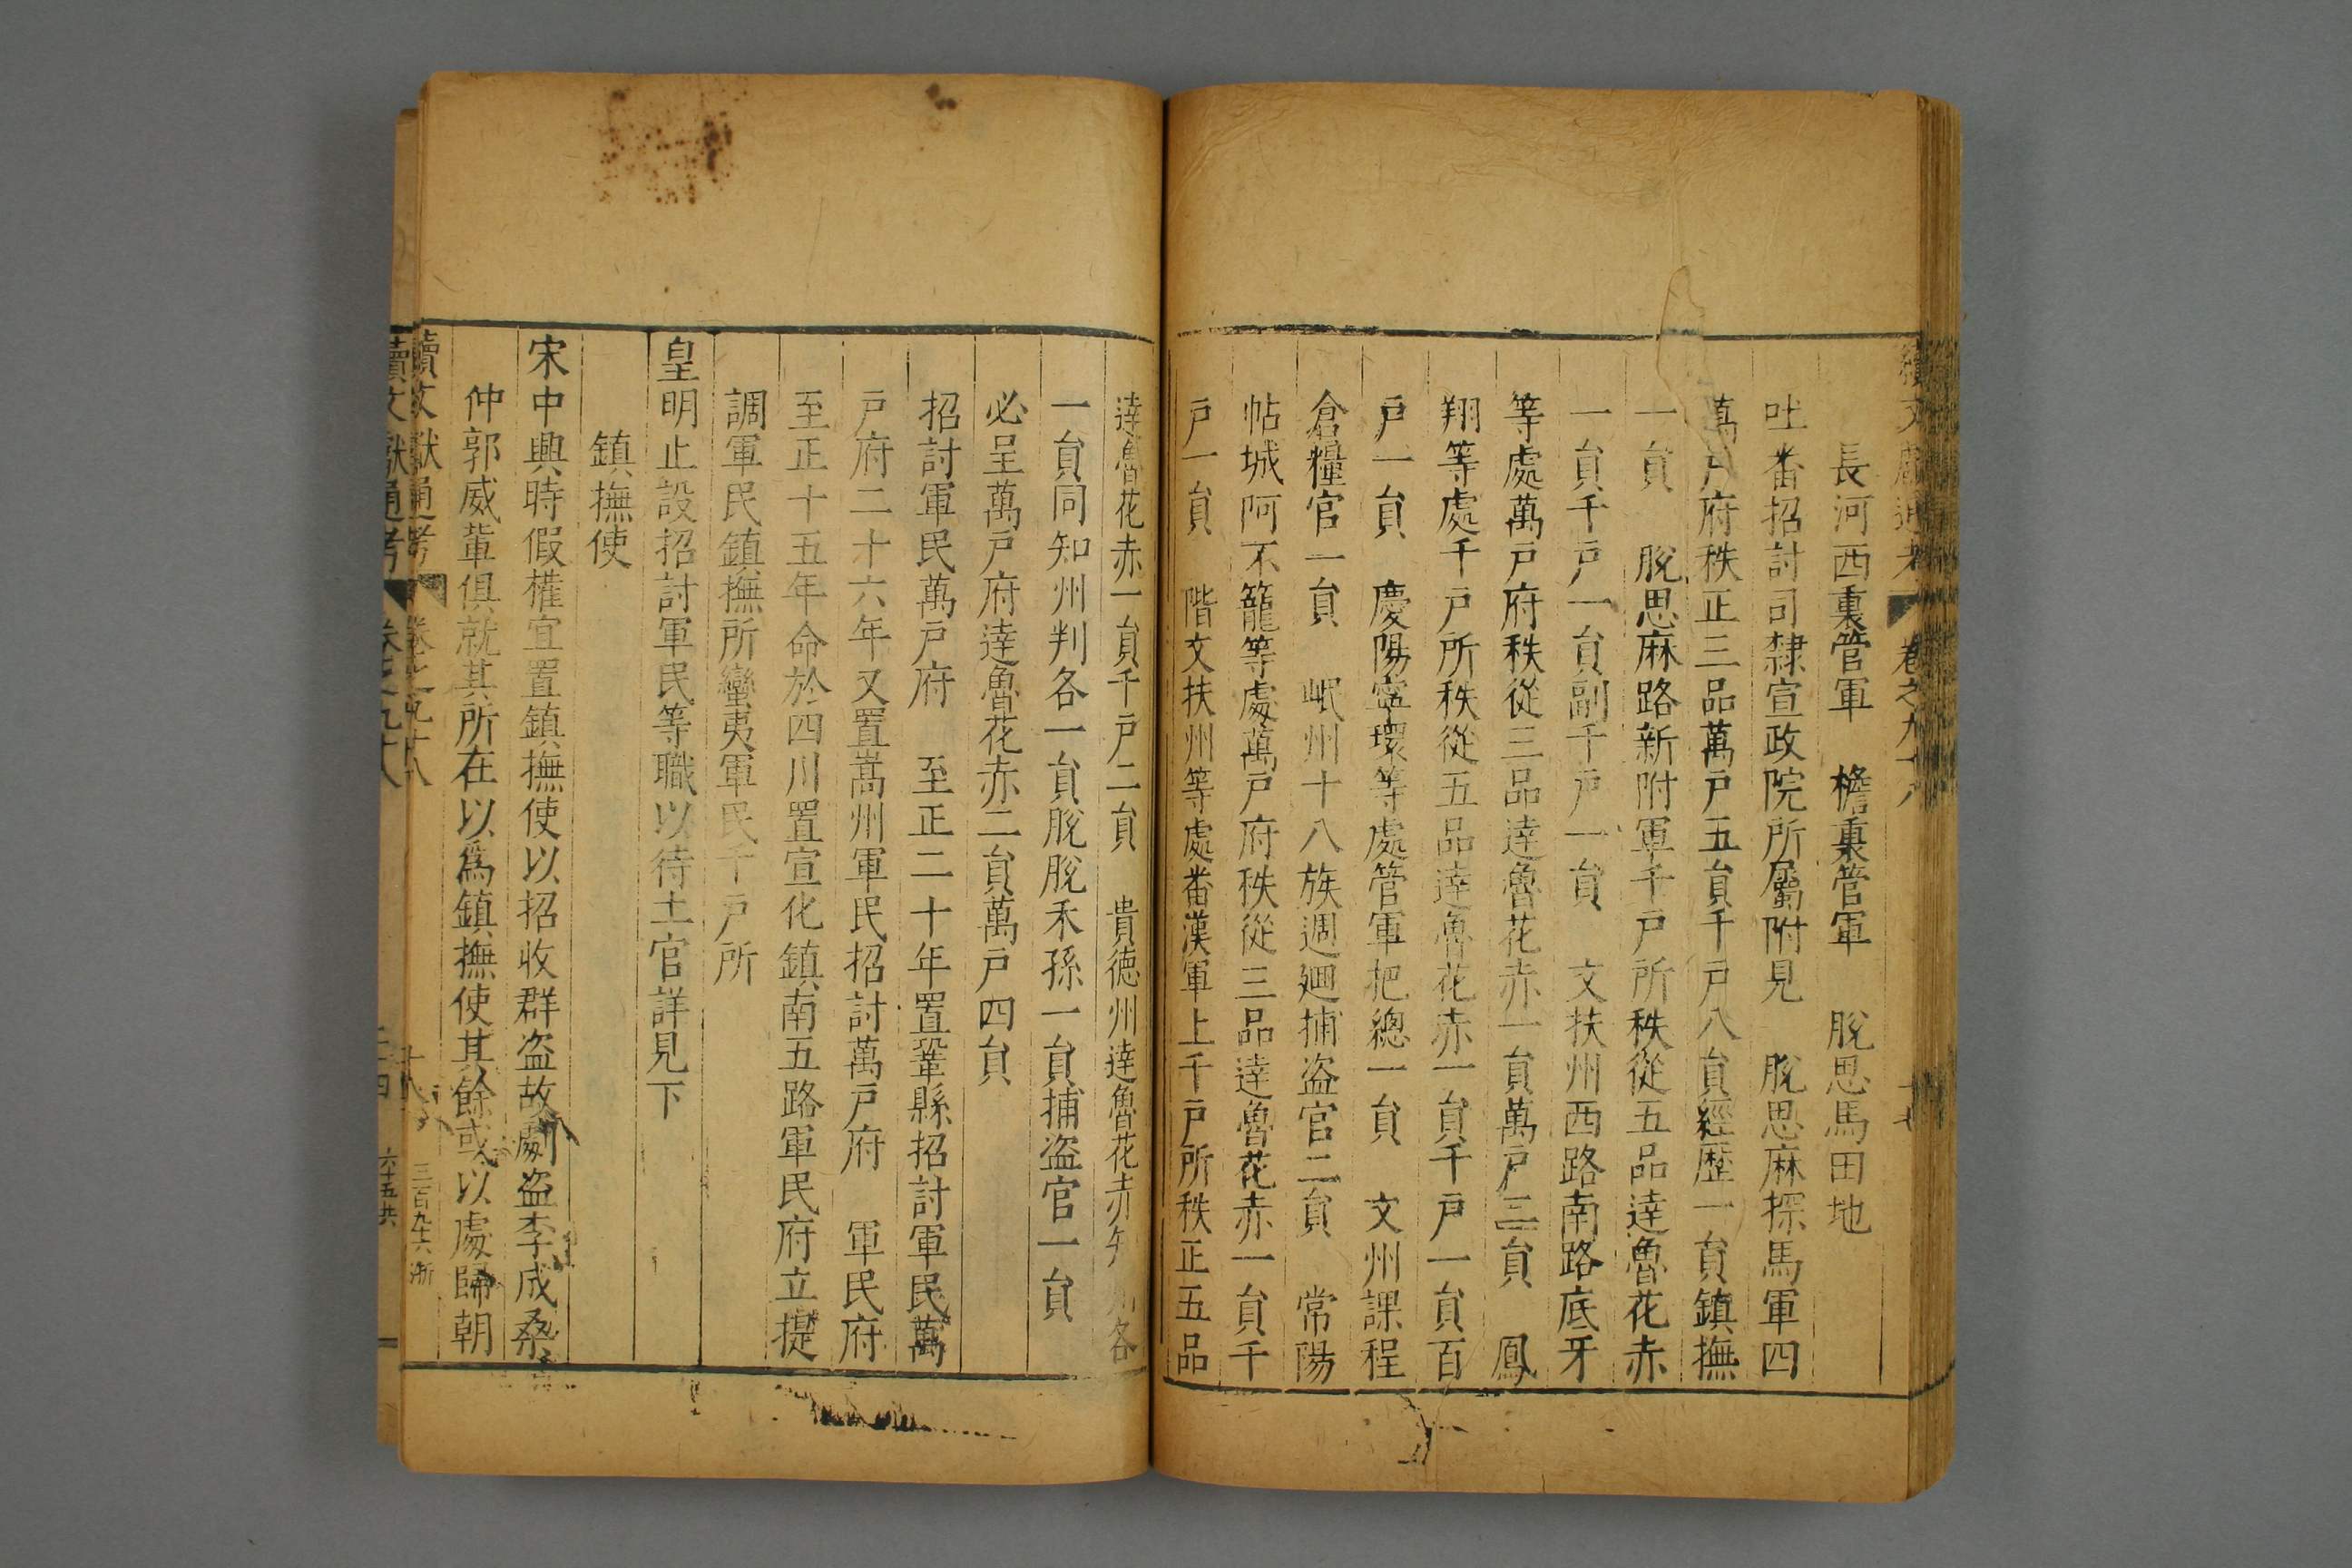 續文獻通考 卷之九十八 十七
長河西裏管軍 檐裏管軍 脫思馬田地
吐番招討司隸宣政院所屬附見 脫思麻探馬軍四
萬戶府秩正三品萬戶五員千戶八員經歷一員鎮撫
一員 脫思麻路新附軍千戶所秩從五品達魯花赤
一員千戶一員副千戶一員 文扶州西路南路底牙
等處萬戶府秩從三品達魯花赤一員萬戶二員 鳳
翔等處千戶所秩從五品達魯花赤一員千戶一員百
戶一員 慶陽寧環等處管軍把總一員 文州課程
倉糧官一員 岷州十八族週廻捕盜官二員 常陽
帖城阿不籠等處萬戶府秩從三品達魯花赤一員千
戶一員 階文扶州等處番漢軍上千戶所秩正五品
達魯花赤一員千戶二員 貴德州達魯花赤知州各
一員同知州判各一員脫脫禾孫一員捕盜官一員
必呈萬戶府達魯花赤二員萬戶四員
招討軍民萬戶府 至正二十年置鞏縣招討軍民萬
戶府二十六年又置嵩州軍民招討萬戶府 軍民府
至正十五年命於四川置宣化鎮南五路軍民府立提
調軍民鎮撫所蠻夷軍民千戶所
皇明止設招討軍民等職以待土官詳見下
鎮撫使
宋中興時假權宜置鎮撫使以招收群盜故劇盜李成桑
仲郭威輩俱就其所在以為鎮撫使其餘或以處歸朝
續文獻通考 卷之九十八 十八 三百九十六 浙
續文獻通考 卷之九十八